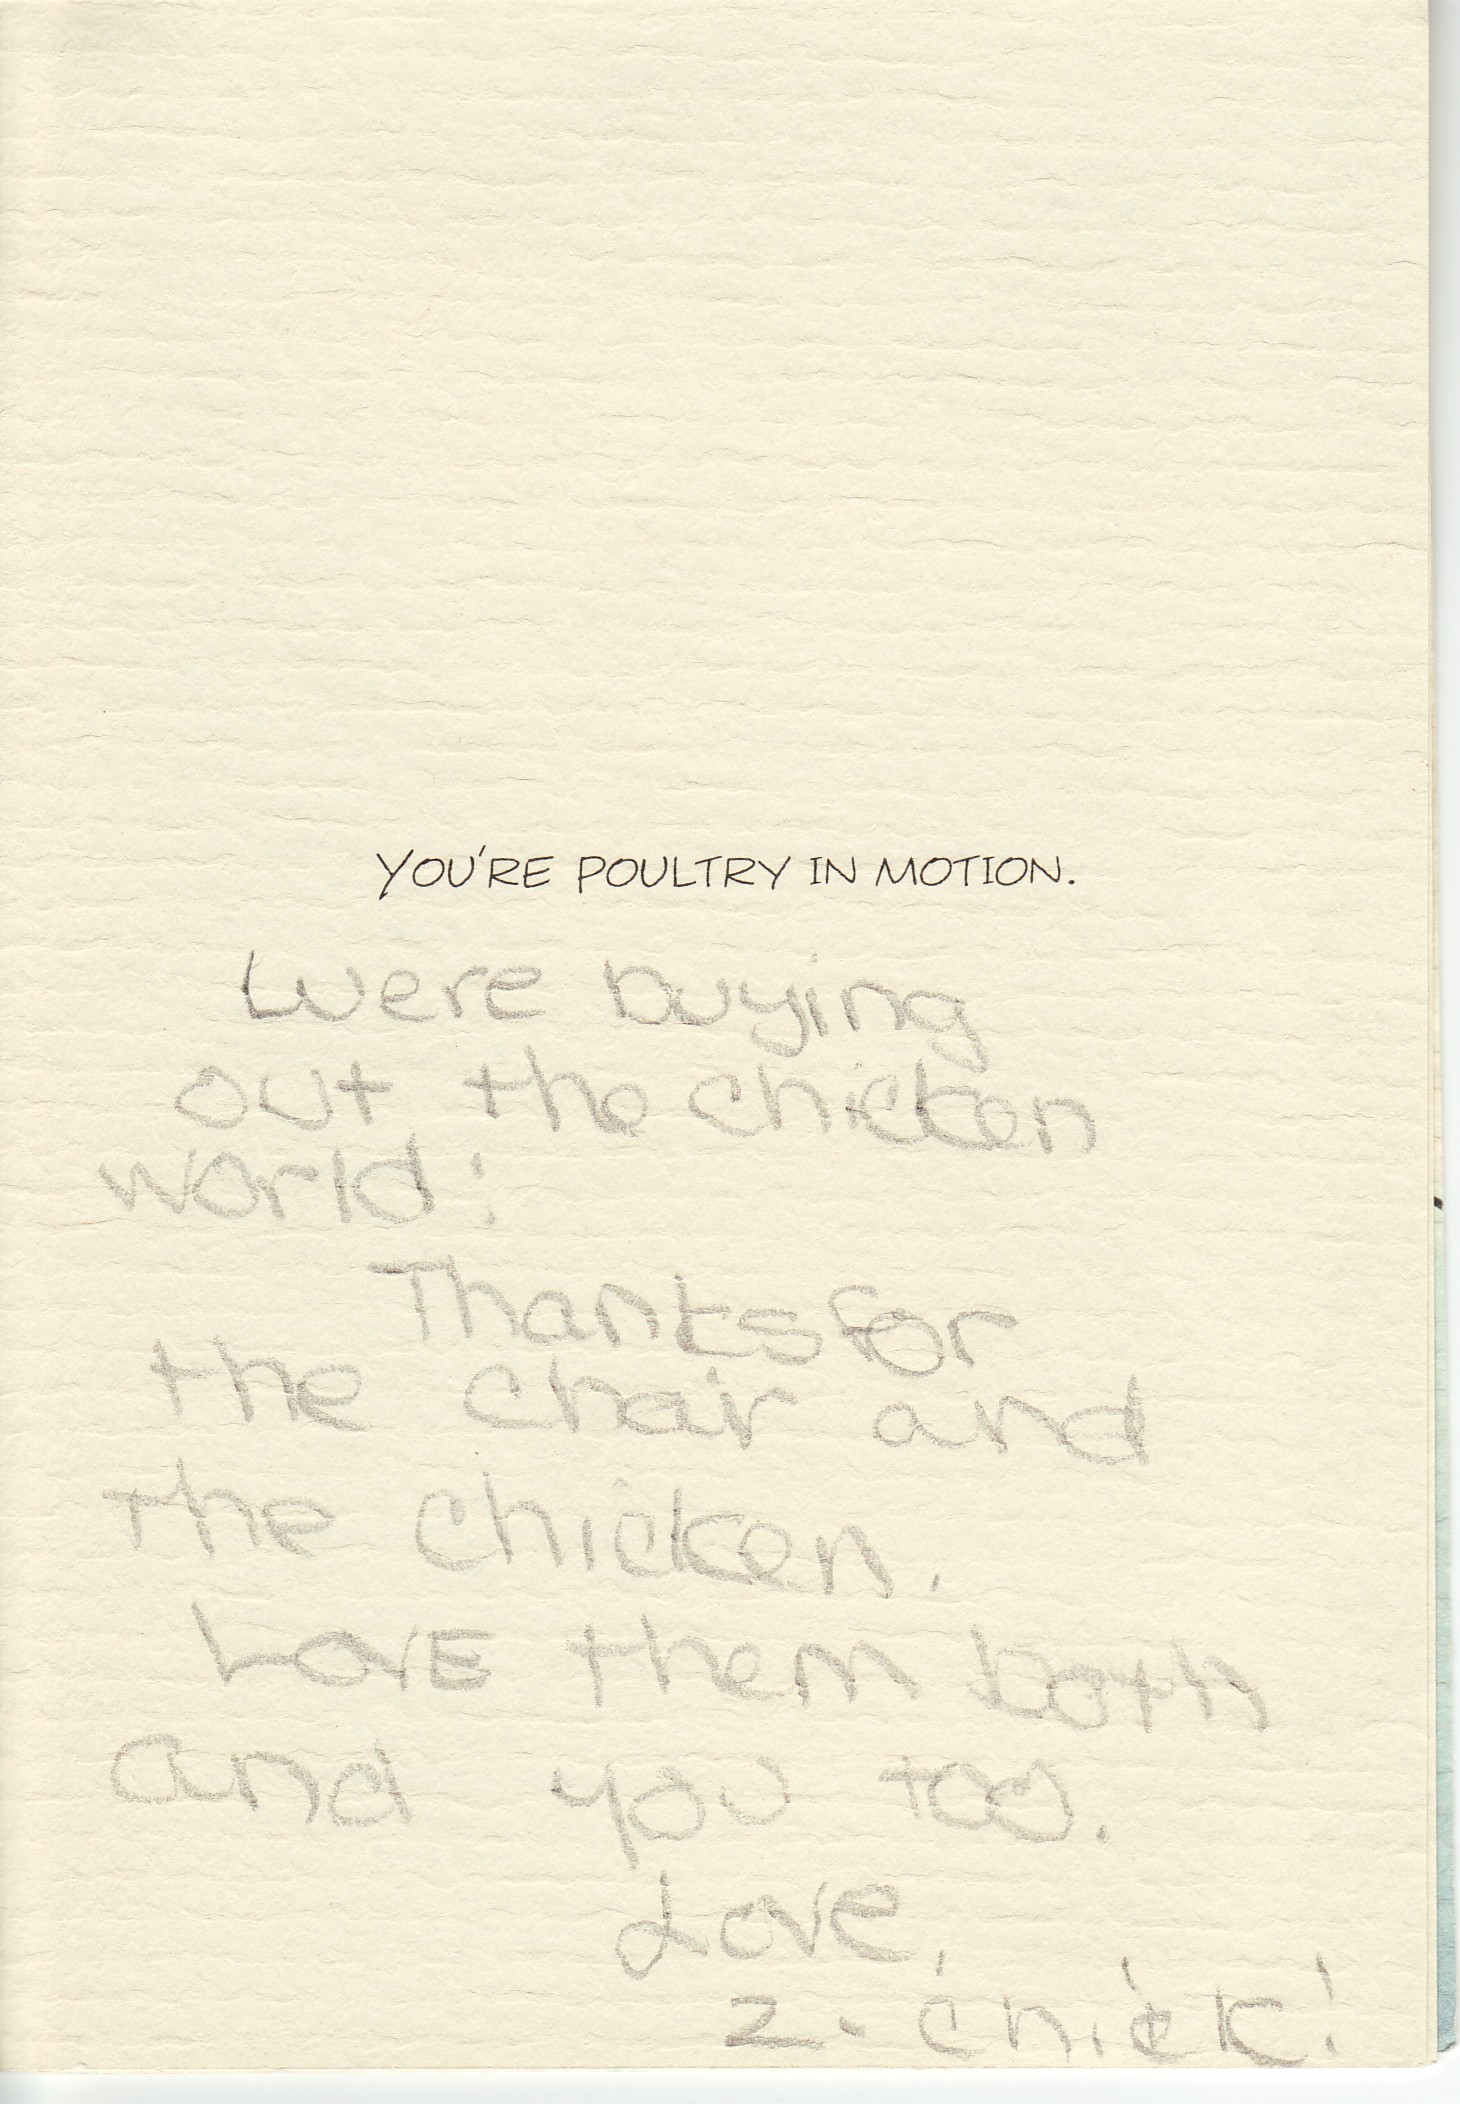 YOU'RE POULTRY IN MOTION.
Were buying
out the chicken
world!
Thanks for
the chair and
the chicken.
LovE them both
and you too.
Love,
Z-chick!